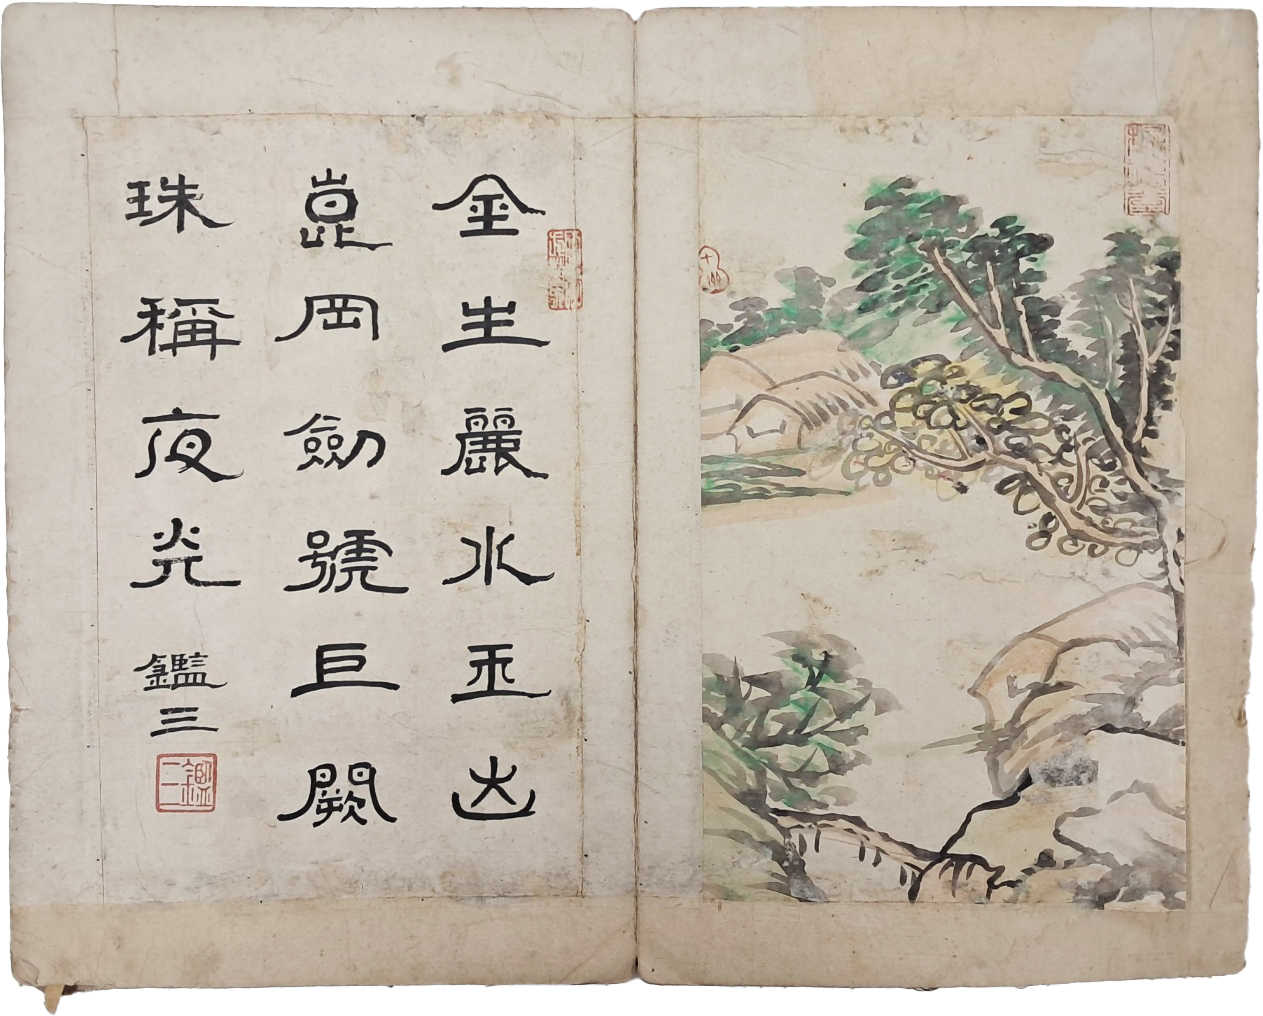 金生麗水玉出
崑岡劍號巨闕
珠稱夜光
鑑三
鑑三
十州